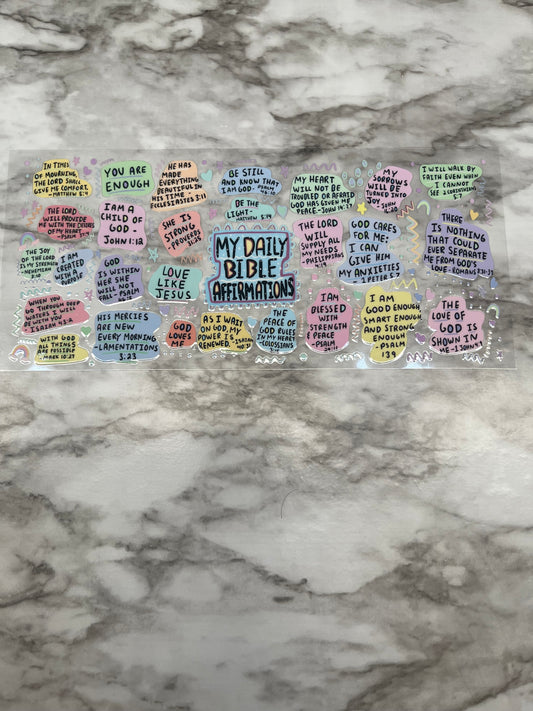 IN TIMES
OF MOURNING,
THE LORD SHALL
GIVE ME COMFORT.
-MATTHEW 5:4
YOU ARE
ENOUGH
HE HAS
MADE
EVERYTHING
BEAUTIFUL IN
HIS TIME -
ECCLESIASTES 3:11
BE STILL
AND KNOW THAT
I AM GOD. PSALM
46:10
MY HEART
WILL NOT BE
TROUBLED OR AFRAID
GOD HAS GIVEN ME
PEACE - JOHN 14:27
MY
SORROWS
WILL BE
TURNED INTO
JOY
JOHN
I WILL WALK BY
FAITH EVEN WHEN
I CANNOT
SEE 2 CORINTHIANS
5:7
THE LORD
WILL PROVIDE
ME WITH THE DESIRES
OF MY HEART
-PSALM 37:4
I AM A
CHILD OF
GOD -
JOHN 1:12
SHE IS
STRONG
PROVERBS
31:25
BE THE
LIGHT-
MATTHEW 5:14
THE LORD
WILL
SUPPLY ALL
MY NEEDS
PHILIPPIANS
4:19
GOD CARES
FOR ME;
I CAN
GIVE HIM
MY ANXIETIES
- 1 PETER 5:7
THERE
IS NOTHING
THAT COULD
EVER SEPARATE
ME FROM GOD'S
LOVE - ROMANS
THE JOY
OF THE LORD
IS MY STRENGTH
-NEHEMIAH
8:10
I AM
CREATED
WITH A
PURPOSE
GOD
IS WITHIN
HER SHE
WILL NOT
FALL - PSALM
LOVE
LIKE
JESUS
MY DAILY
BIBLE
AFFIRMATIONS
WHEN YOU
GO THROUGH DEEP
WATERS I WILL
BE WITH YOU
ISAIAH 43:2
HIS MERCIES
ARE NEW
EVERY MORNING
-LAMENTATIONS
3:23
GOD
LOVES
ME
AS I WAIT
ON GOD, MY
POWER IS
RENEWED. -ISAIAH
40:31
THE
PEACE OF
GOD RULES
IN MY HEART
COLOSSIANS
3:15
I AM
BLESSED
WITH
STRENGTH
& PEACE
-PSALM
29:11
I AM
GOOD ENOUGH
SMART ENOUGH
AND STRONG
ENOUGH
-PSALM
139
THE
LOVE OF
GOD IS
SHOWN IN
ME - 1 JOHN 4:9
WITH GOD
ALL THINGS
ARE POSSIBLE
- MARK 10:27